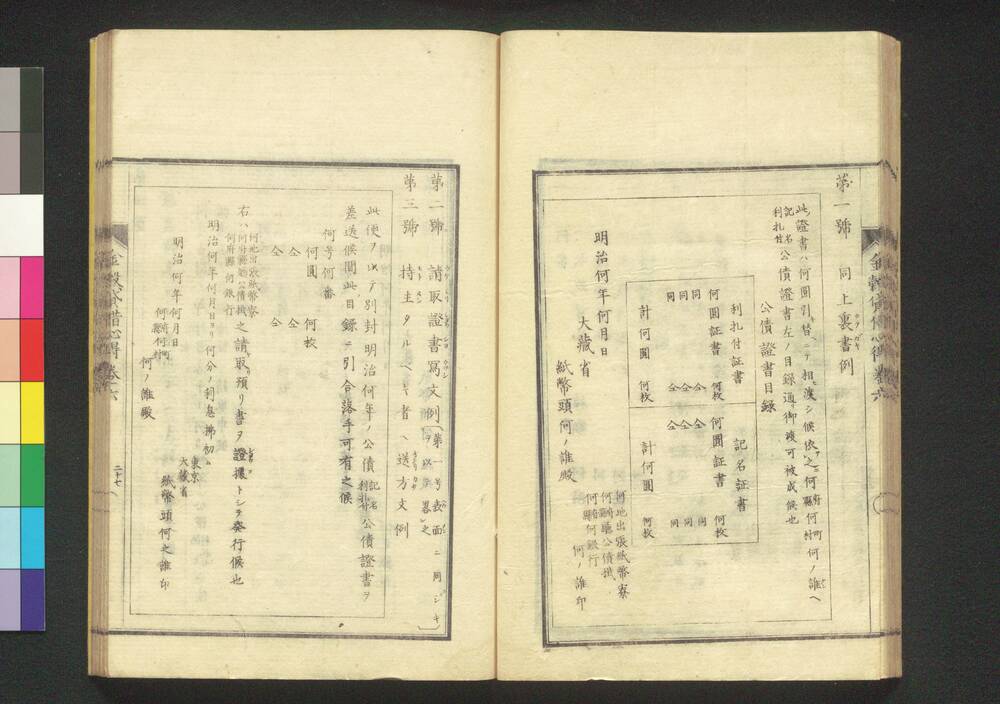 第一號 同上裏書例
此證書ハ何圓引替ニテ相渡シ候依之何府縣何町村何ノ誰ヘ
記名利札付公債證書左ノ目録通御渡可被成候也
公債證書目録
利札付証書 記名証書
何圓証書 何枚 何圓証書 何枚
同 仝 仝 同
同 仝 仝 同
同 仝 仝 同
計何圓 何枚 計何圓 何枚
明治何年何月日
大藏省
紙幣頭何ノ誰殿
何地出張紙幣寮
何府縣公債掛
何府縣何銀行
何ノ誰印
第二號 請取證書寫文例 第一号表面ニ同ジキヲ以テ畧之
第三號 持主タルヘキ者ヘ送方文例
此便ヲ以テ別封明治何年ノ公債記名利札付公債證書ヲ
差送候間此目録ニ引合落手可有之候
何号何番
何圓 何枚
仝 仝
仝 仝
何地出張紙幣寮
右ハ何府縣公債掛之請取預リ書ヲ證據トシテ發行候也
何府縣何銀行
明治何年何月日ヨリ何分ノ利息拂初
東京
大藏省
紙幣頭何之誰印
明治何年何月日
何府縣何町村
何ノ誰殿
金穀貸借心得 巻六
二十七